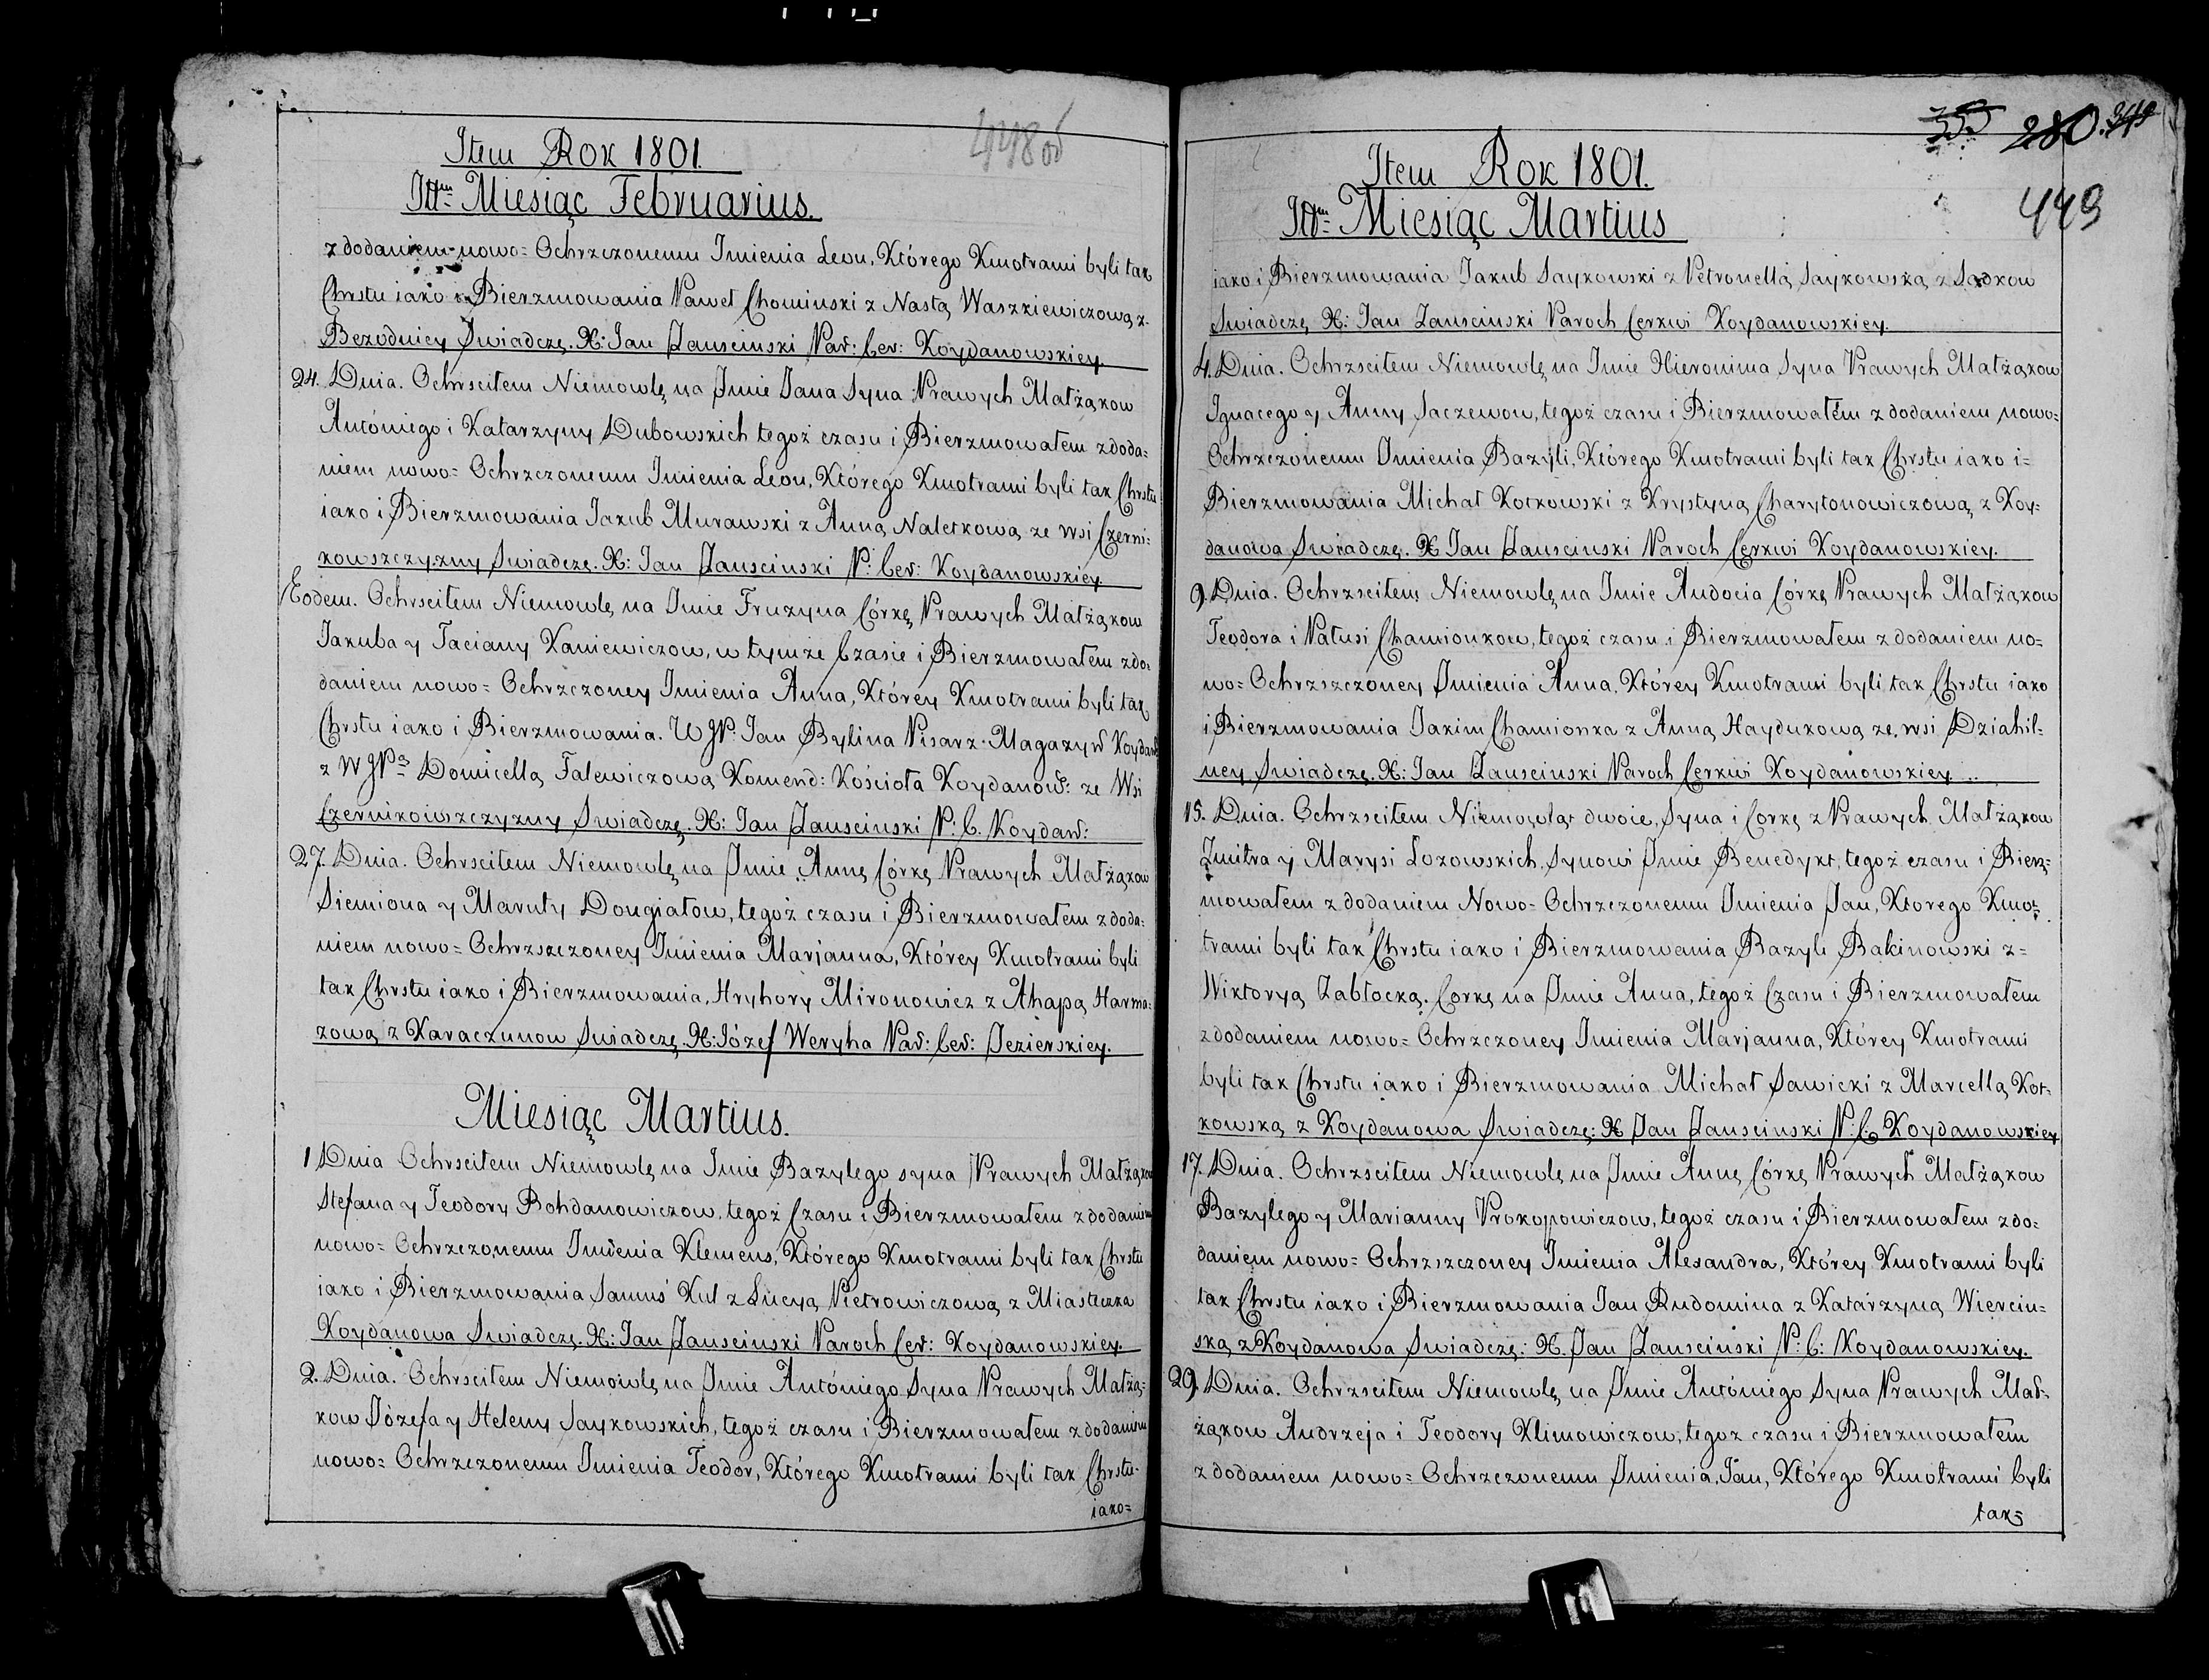 Item Rok 1801.
448 об
Ittm Miesiąc Februarius.
z dodaniem nowo= Ochrzczonemu Imienia Leon, Którego Kmotrami byli tak
Chrstu iako i Bierzmowania Paweł Chominski z Nastą Waszkiewiczową z
Bezodnicy Swiadczę. X: Jan Zauscinski Par: Cer: Koydanowskiey.
24. Dnia. Ochrscitem Niemowlę na Jmie Jana Syna Prawych Małżąkow
Antóniego i Katarzyny Dubowskich tegoż czasu i Bierzmowałem z doda=
niem nowo= Ochrzczonemu Imienia Leon, Którego Kmotrami byli tak Chrstu
iako i Bierzmowania Jakub Murawski z Anną Naletkową ze wsi Czerni=
kowszczyzny Swiadczę. X: Jan Zauscinski P: Cer: Koydanowskiey.
Eodem. Ochrscitem Niemowlę na Jmie Fruzyna Córkę Prawych Małżąkow
Jakuba y Taciany Kaniewiczow, w tymże Czasie i Bierzmowałem z do=
daniem nowo= Ochrzczoney Imienia Anna, Którey Kmotrami byli tak
Chrstu iako i Bierzmowania. W JP. Jan Bylina Pisarz Magazyn Koydan
z W JPą Domicellą Falewiczową Komend: Kościoła Koydanow: ze Wsi
Czernikowszczyzny Swiadczę. X: Jan Zauscinski P: C. Koydan:
27. Dnia. Ochrscitem Niemowlę na Jmie Annę Córkę Prawych Małżąkow
Siemiona y Maruty Dougiałow, tegoż czasu i Bierzmowałem z doda=
niem nowo= Ochrzszczoney Imienia Marjanna, Którey Kmotrami byli
tak Chrstu iako i Bierzmowania, Hryhory Mironowicz z Ahapą Harma=
zową z Karaczunow Swiadczę. X: Józef Weryha Par: Cer: Jezierskiey.
Miesiąc Martius.
1 Dnia Ochrscitem Niemowlę na Jmie Bazylego syna Prawych Małżąkow
Stefana y Teodory Bohdanowiczow, tegoż Czasu i Bierzmowałem z dodaniem
nowo= Ochrzczonemu Imienia Klemens, Którego Kmotrami byli tak Chrstu
iako i Bierzmowania Samuś Kul z Lucyą Pietrowiczową z Miasteczka
Koydanowa Swiadczę. X: Jan Zauscinski Paroch Cer: Koydanowskiey.
2. Dnia. Ochrscitem Niemowlę na Jmie Antóniego Syna Prawych Małżą=
kow Józefa y Heleny Saykowskich, tegoż czasu i Bierzmowałem z dodaniem
nowo= Ochrzczonemu Imienia Teodor, Którego Kmotrami byli tak Chrstu
iako=
280.
449
Item Rok 1801.
Ittm Miesiąc Martius
iako i Bierzmowania Jakub Saykowski z Petronellą Saykowską z Sadkow
Swiadczę X: Jan Zauscinski Paroch Cerkwi Koydanowskiey.
4. Dnia. Ochrzscitem Niemowlę na Jmie Hieronima Syna Prawych Małżąkow
Ignacego y Anny Saczewow, tegoż czasu i Bierzmowałem z dodaniem nowo=
Ochrzczonemu Imienia Bazyli, Którego Kmotrami byli tak Chrstu iako i=
Bierzmowania Michał Kotkowski z Krystyną Charytonowiczową, z Koy=
danowa Swiadczę. X Jan Zauscinski Paroch Cerkwi Koydanowskiey.
9. Dnia. Ochrzscitem Niemowlę na Jmie Audocia Córkę Prawych Małżąkow
Teodora i Natusi Chamionkow, tegoż czasu i Bierzmowałem z dodaniem no=
wo= Ochrzszczoney Imienia Anna, Którey Kmotrami byli tak Chrstu iako
i Bierzmowania Jakim Chamionka z Anną Haydukową ze wsi Dziahil=
ney Swiadczę. X: Jan Zauscinski Paroch Cerkwi Koydanowskiey...
15. Dnia. Ochrzscitem Niemowląt dwoie, Syna i Corkę z Prawych Małżąkow
Zmitra y Marysi Lozowskich, Synowi Jmie Benedykt, tegoż czasu i Bierz=
mowałem z dodaniem Nowo= Ochrzczonemu Imienia Jan, Ktorego Kmo=
trami byli tak Chrstu iako i Bierzmowania Bazyli Bakinowski z=
Wiktoryą Zabłocką. Corkę na Jmie Anna, tegoż Czasu i Bierzmowałem
z dodaniem nowo= Ochrzczoney Imienia Marjanna, Którey Kmotrami
byli tak Chrstu iako i Bierzmowania Michał Sawicki z Marcellą Kot=
kowską z Koydanowa Swiadczę: X Jan Zausciński P: C Koydanowskiey
17. Dnia. Ochrzscitem Niemowlę na Jmie Annę Córkę Prawych Małżąkow
Bazylego y Marianny Prokopowiczow, tegoż czasu i Bierzmowałem z do=
daniem nowo= Ochrzszczoney Imienia Alesandra, Którey Kmotrami byli
tak Chrstu iako i Bierzmowania Jan Rudomina z Katarzyną Wierciń=
ską z Koydanowa Swiadczę: X. Jan Zausciński P: C: Koydanowskiey.
29. Dnia. Ochrzscitem Niemowlę na Jmie Antóniego Syna Prawych Mał=
żąkow Andrzeja i Teodory Klimowiczow, tegoż czasu i Bierzmowałem
z dodaniem nowo= Ochrzczonemu Imienia, Jan, Którego Kmotrami byli
tak=